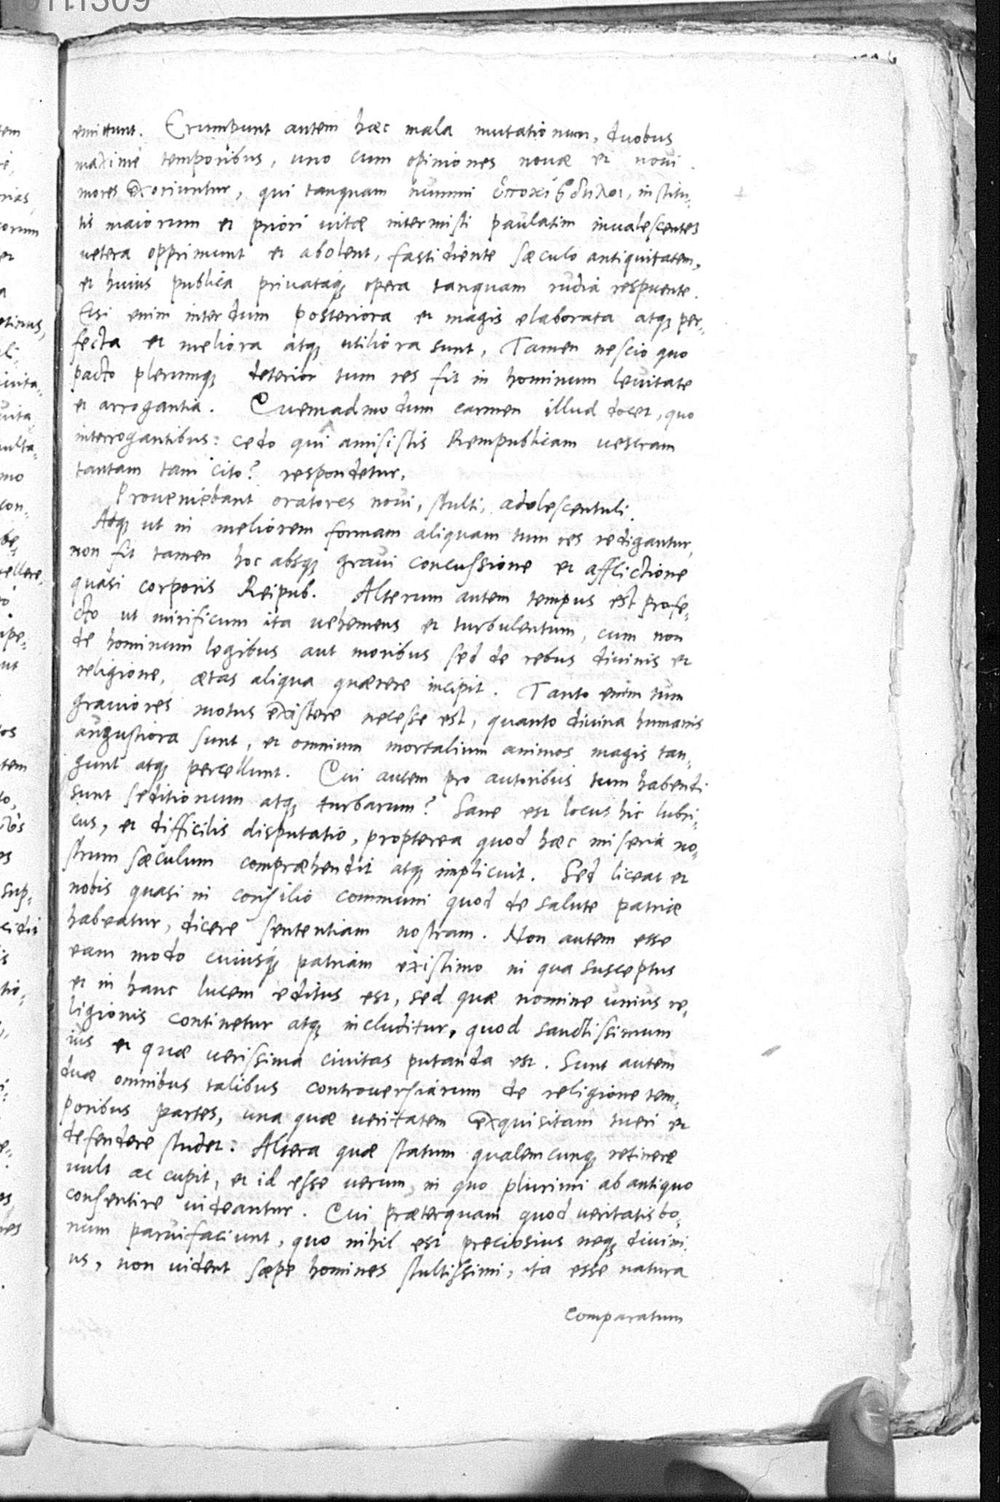 emittunt. Erumpunt autem hæc mala mutationum, duobus
maximè temporibus, uno cum opiniones novæ et novi
mores exoriuntur, qui tanquam nummi ὑπο, institu-
tis maiorum et priori vitæ intermisti paulatim invalescentes
vetera opprimunt et abolent, fastidiente sæculo antiquitatem,
et huius publica privataq; opera tanquam rudia respuente.
Etsi enim interdum posteriora et magis elaborata atq; per-
fecta et meliora atq; utiliora sunt, Tamen nescio quo
pacto plerumq; deterior tum res fit in hominum levitate
et arrogantia. Quemadmodum carmen illud docet, quo
interrogantibus: cedo qui amisistis Rempublicam vestram
tantam tam cito? respondetur.
Proveniebant oratores novi, stulti, adolescentuli.
Atq; ut in meliorem formam aliquam tum res redigantur,
non fit tamen hoc absq; gravi concussione et afflictione
quasi corporis Reipub. Alterum autem tempus est profe-
cto ut mirificum ita vehemens et turbulentum, cum non
de hominum legibus aut moribus sed de rebus divinis et
religione, ætas aliqua quærere incipit. Tanto enim tum
graviores motus existere necesse est, quanto divina humanis
angustiora sunt, et omnium mortalium animos magis tan-
gunt atq; percellunt. Qui autem pro autoribus tum habendi
sunt seditionum atq; turbarum? Sane est locus hic lubri-
cus, et difficilis disputatio, propterea quod hæc miseria no-
strum sæculum compræhendit atq; implicuit. Sed liceat et
nobis quasi in consilio communi quod de salute patriæ
habeatur, dicere sententiam nostram. Non autem esse
eam modo cuiusq; patriam existimo in qua susceptus
et in hanc lucem editus est, sed quæ nomine unius re-
ligionis continetur atq; includitur, quod sanctissimum
ius et quæ verissima civitas putanda est. Sunt autem
duæ omnibus talibus controversiarum de religione tem-
poribus partes, una quæ veritatem exquisitam tueri et
defendere studet: Altera quæ statum qualemcunq; retinere
vult ac cupit, et id esse verum, in quo plurimi ab antiquo
consentire videantur. Qui præterquam quod veritatis bo-
num parvifaciunt, quo nihil est preciosius neq; divini-
us, non vident sæpe homines stultissimi, ita esse natura
comparatum